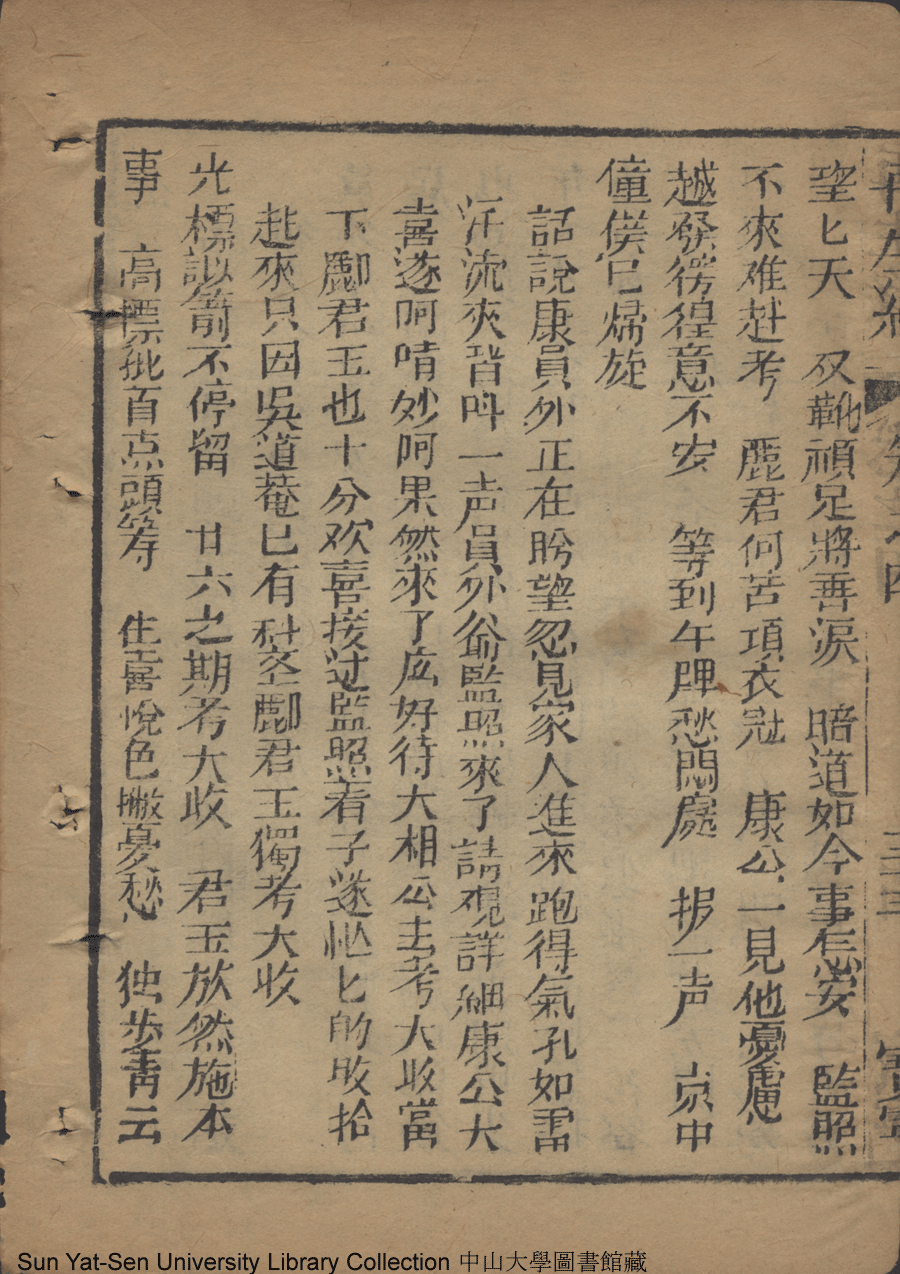 望匕天　双靴頓足將善淚　暗道如今事怎安　監照
不來难赴考　麗君何苦項衣冠　康公一見他憂慮
越發徬徨意不安　等到午牌愁悶處　报一声　京中
僮僕已㷌旋
話說康員外正在盼望忽見家人進來跑得氣孔如雷
汗流夾背呌一声員外爺監照來了請覌詳細康公大
喜遂呵唷妙阿果然來了庅好待大相公去考大收當
下酈君玉也十分欢喜接过監照看了遂忙匕的收拾
起來只因吳道菴已有科举酈君玉獨考大收
光標似箭不停留　廿六之期考大收　君玉放然施本
事　高標批首点頭筹　生喜悅色撇憂愁　独步青云
Sun Yat-Sen University Library Collection 中山大學圖書館藏